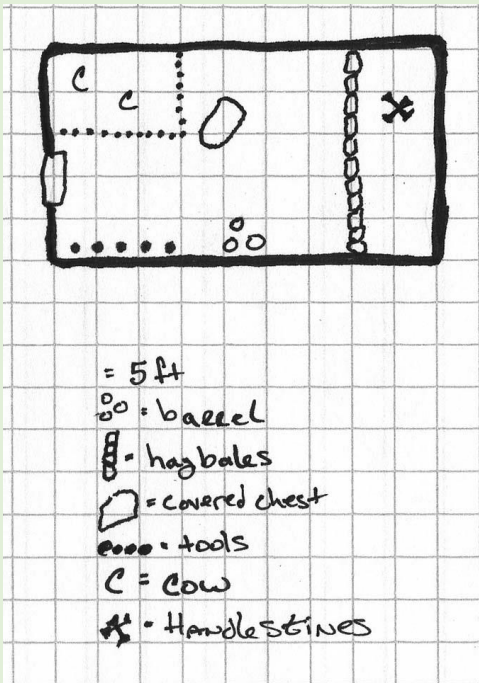 C
C
= 5 ft
= barrel
= haybales
= covered chest
= tools
C = Cow
- Handlestines